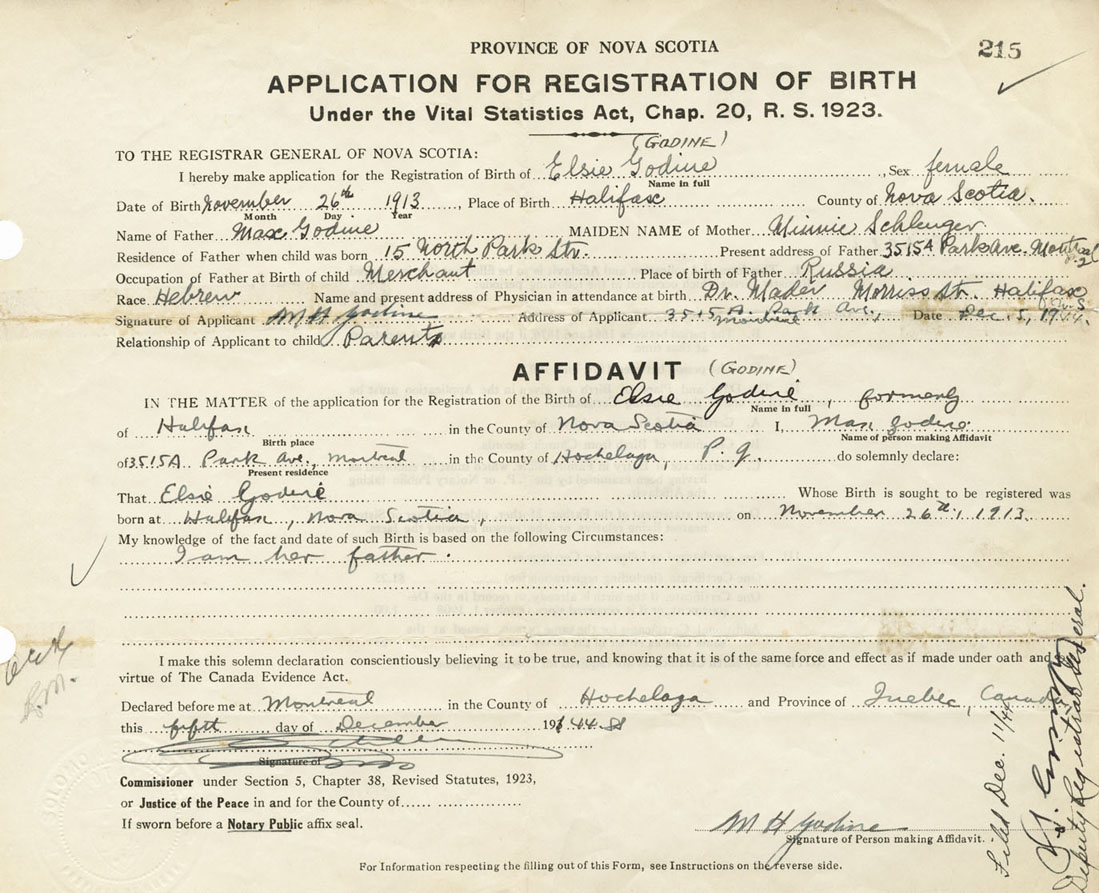 PROVINCE OF NOVA SCOTIA
215
APPLICATION FOR REGISTRATION OF BIRTH
Under the Vital Statistics Act, Chap. 20, R. S. 1923.
(GODINE)
TO THE REGISTRAR GENERAL OF NOVA SCOTIA:
I hereby make application for the Registration of Birth of Elsie Godine, Sex female
Name in full
Date of Birth November 26th 1913, Place of Birth Halifax County of Nova Scotia.
Month Day Year
Name of Father Max Godine MAIDEN NAME of Mother Minnie Schlenger
Residence of Father when child was born 15 North Park Str. Present address of Father 3515A Park Ave. Montreal
Occupation of Father at Birth of child Merchant Place of birth of Father Russia
Race Hebrew Name and present address of Physician in attendance at birth Dr. Mader Morriss St. Halifax
Signature of Applicant M H Godine Address of Applicant 3515 A. Park Ave., Montreal Date Dec. 5, 1944.
Relationship of Applicant to child Parents
AFFIDAVIT (GODINE)
IN THE MATTER of the application for the Registration of the Birth of Elsie Godine, formerly
Name in full
of Halifax in the County of Nova Scotia I, Max Godine
Birth place Name of person making Affidavit
of 3515A Park Ave., Montreal in the County of Hochelaga, P. Q. do solemnly declare:
Present residence
That Elsie Godine Whose Birth is sought to be registered was
born at Halifax, Nova Scotia, on November 26th, 1913.
My knowledge of the fact and date of such Birth is based on the following Circumstances:
I am her father.
I make this solemn declaration conscientiously believing it to be true, and knowing that it is of the same force and effect as if made under oath and
virtue of The Canada Evidence Act.
Declared before me at Montreal in the County of Hochelaga and Province of Quebec, Canada
this fifth day of December 1944
Signature of
Commissioner under Section 5, Chapter 38, Revised Statutes, 1923,
or Justice of the Peace in and for the County of
If sworn before a Notary Public affix seal.
M H Godine
Signature of Person making Affidavit.
For Information respecting the filling out of this Form, see Instructions on the reverse side.
Filed Dec. 11/44
Deputy Registrar General.